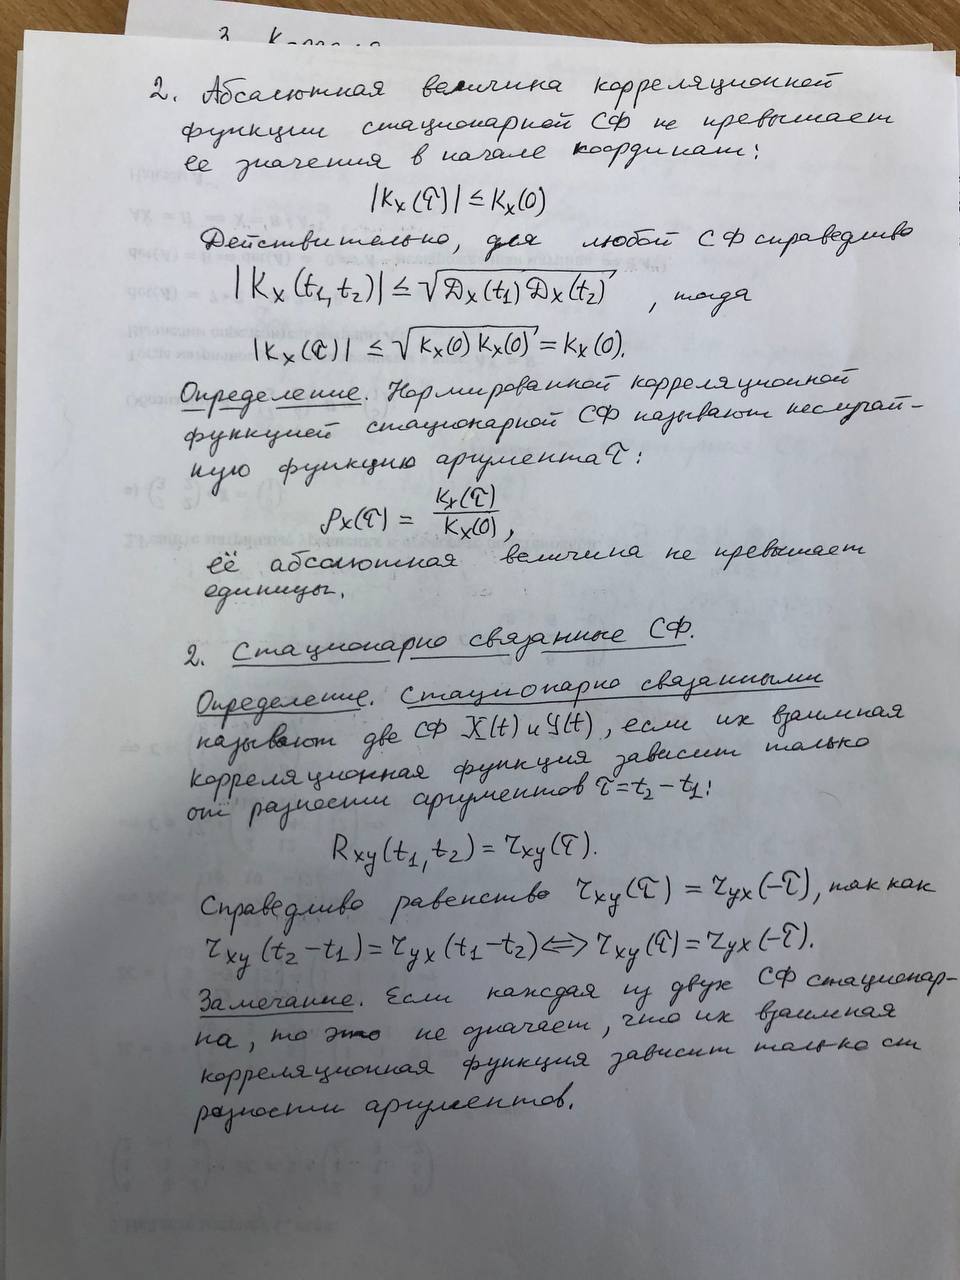 2. Абсолютная величина корреляционной
функции стационарной СФ не превышает
ее значения в начале координат:
|Kx(τ)| ≤ Kx(0)
Действительно, для любой СФ справедливо
|Kx(t1, t2)| ≤ √Dx(t1) Dx(t2) , тогда
|Kx(τ)| ≤ √Kx(0) Kx(0) = Kx(0).
Определение. Нормированной корреляционной
функцией стационарной СФ называют неслучай-
ную функцию аргумента τ:
ρx(τ) = Kx(τ)/Kx(0),
её абсолютная величина не превышает
единицы.
2. Стационарно связанные СФ.
Определение. Стационарно связанными
называют две СФ X(t) и Y(t), если их взаимная
корреляционная функция зависит только
от разности аргументов τ = t2 – t1:
Rxy(t1, t2) = τxy(τ).
Справедливо равенство τxy(τ) = τyx(–τ), так как
τxy(t2 – t1) = τyx(t1 – t2) ⟺ τxy(τ) = τyx(–τ).
Замечание. Если каждая из двух СФ стационар-
на, то это не значает, что их взаимная
корреляционная функция зависит только от
разности аргументов.